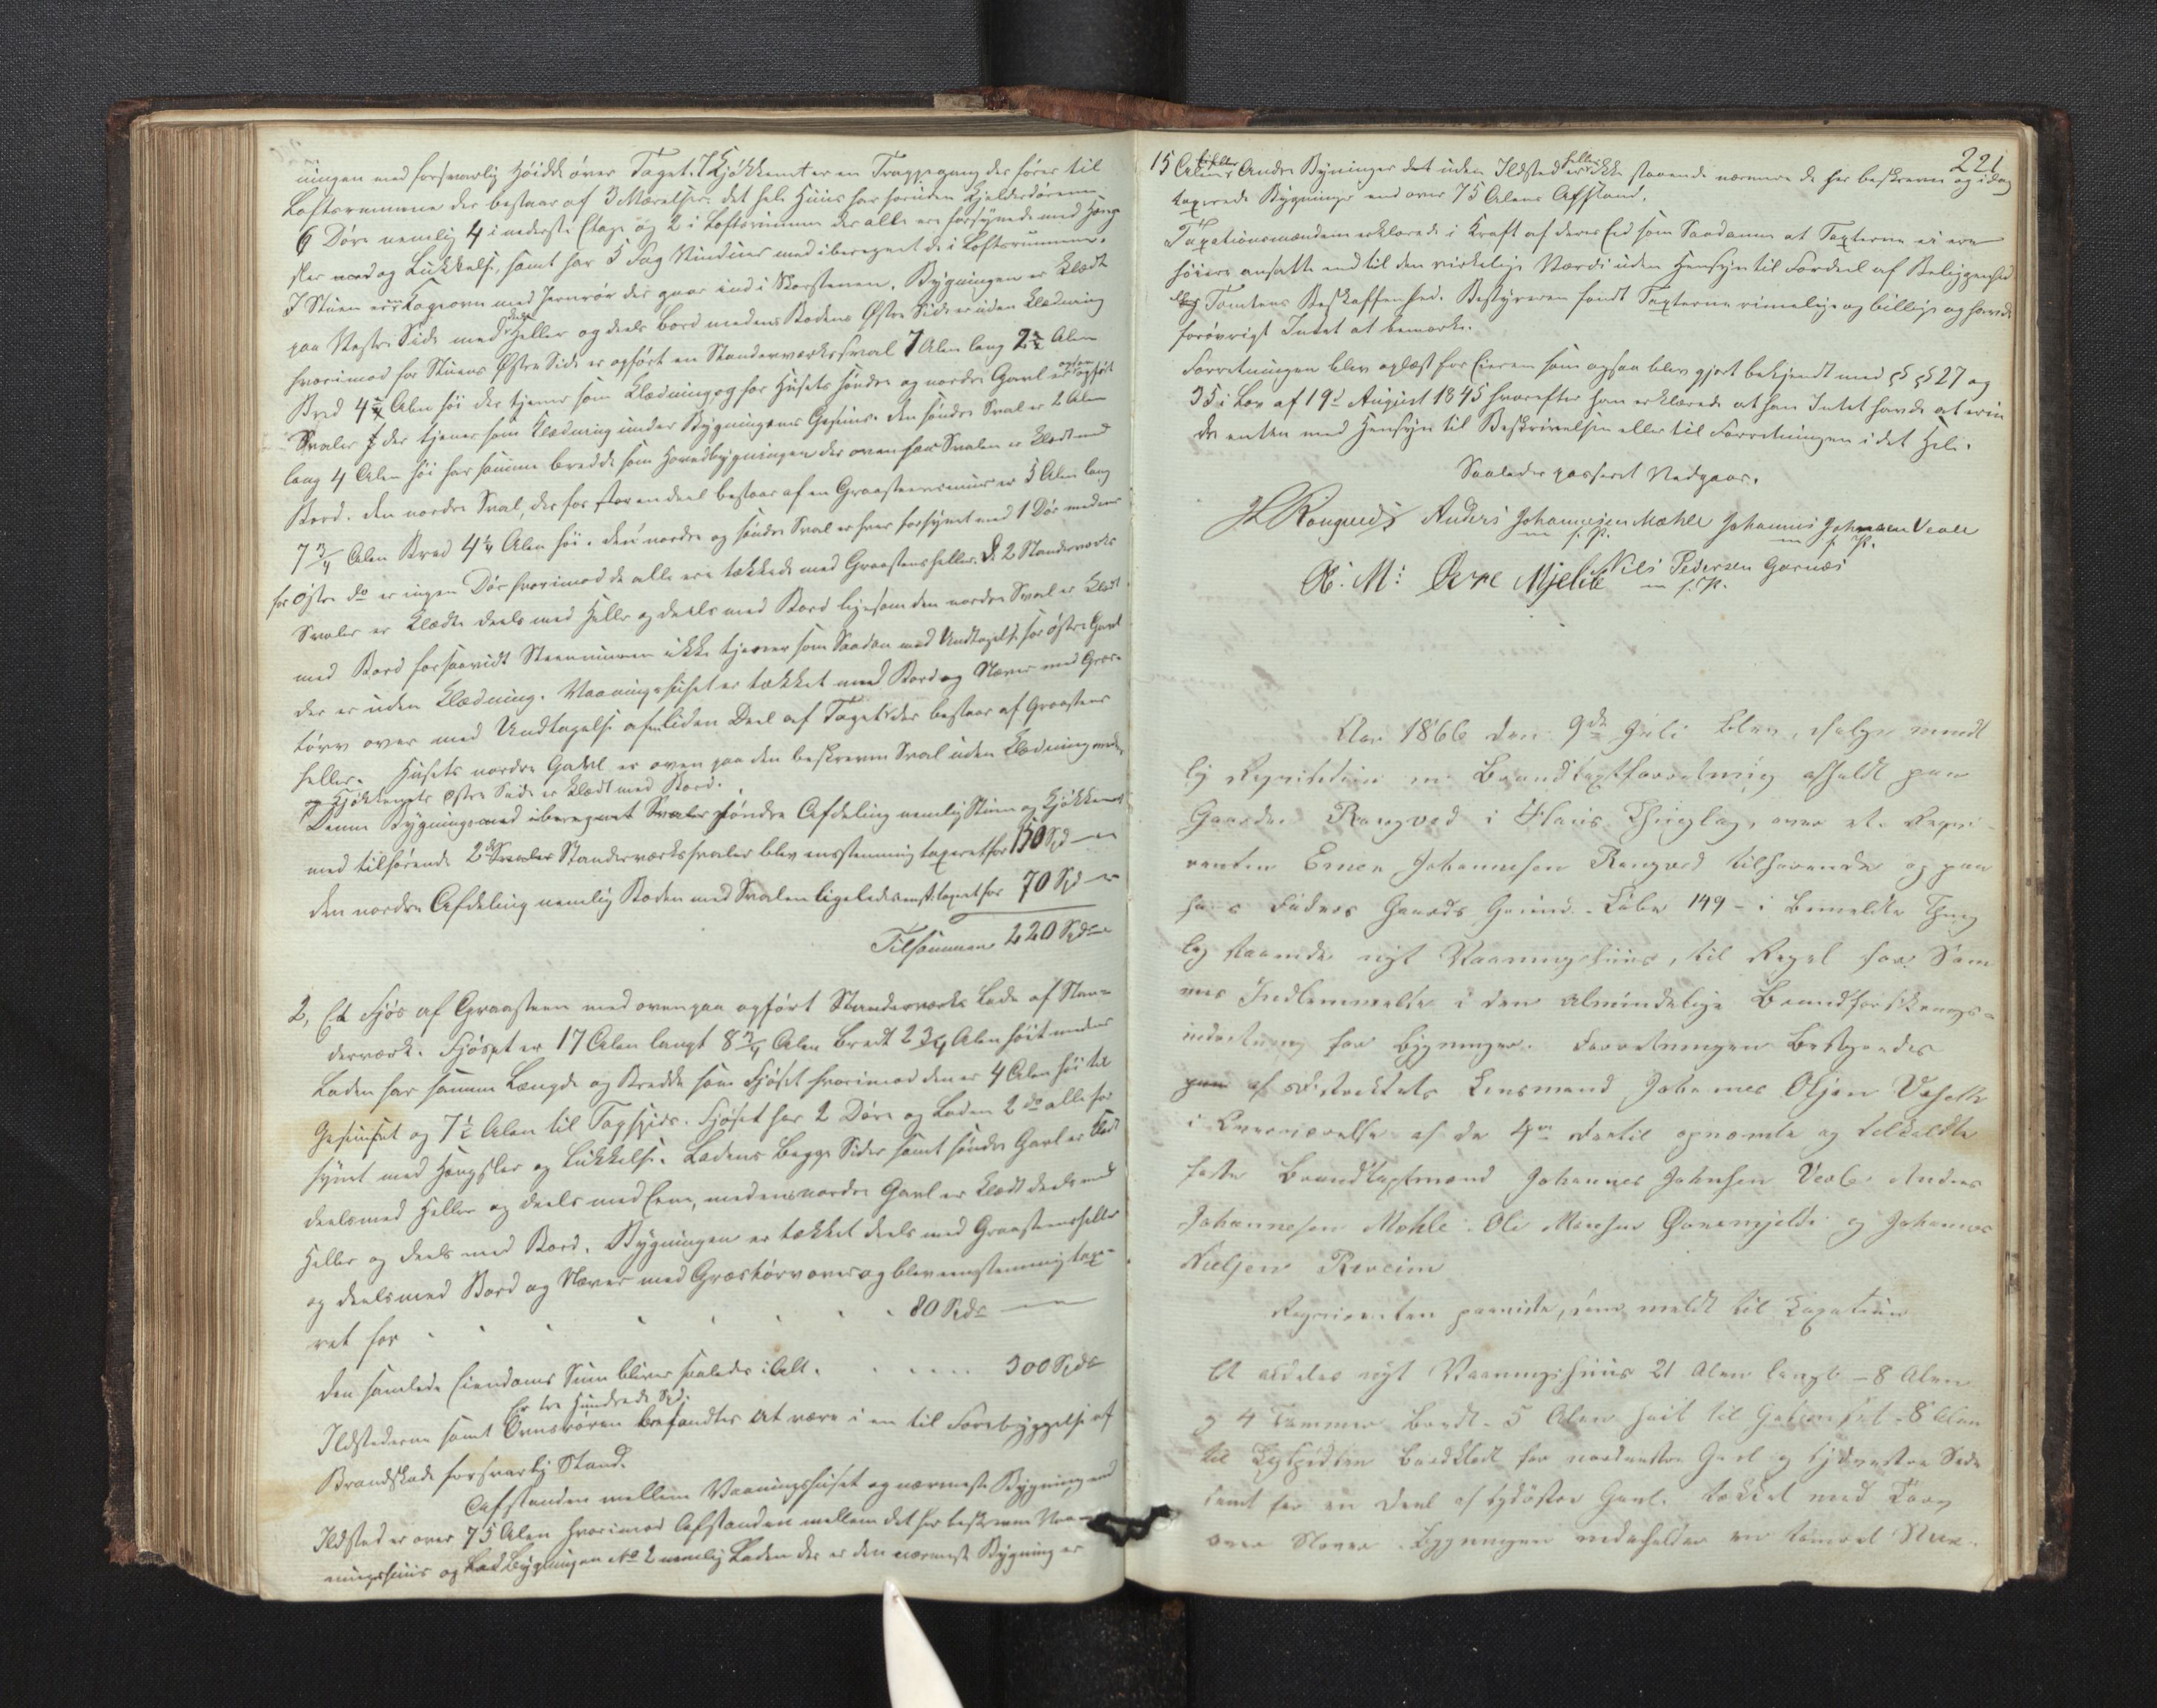 ningen med forsvarlig Høidde over Taget. I Kjøkkenet er en Trappegang der fører til
Loftsrummene der bestaar af 3 Værelser. Det hele Huus har foruden Kjelderdøren
6 Døre nemlig 4 i nederste Etage og 2 i Loftsrummene der alle ere forsynede med Hæng-
sler og Lukkelse, samt har 5 Fag Vinduer med iberegnet de i Loftsrummene.
I Stuen er en Kogeovn med Jernrør der gaar ind i Skorstenen. Bygningen er klædt
paa Vestre Side med deels Heller og deels Bord medens Bodens Østre Side er uden Klædning
hvorimod for Stuens Østre Side er opført en Standerværkssval 7 Alen lang 2 1/2 Alen
Bred 4 1/4 Alen høi der tjener som Klædning, og for Husets søndre og nordre Gavl er opført
Svaler der tjener som Klædning under Bygningens Gesims. Den søndre Sval er 2 Alen
lang 4 Alen høi har samme bredde som Hovedbygningen der ovenfor Svalen er klædt med
Bord. Den nordre Sval, der for størendeel bestaar af en Graasteensmuur er 5 Alen lang
7 3/4 Alen Bred 4 1/4 Alen høi. Den nordre og søndre Sval er hver forsynet med 1 Dør medens
for Østre do er ingen Dør hvorimod de alle ere tækkede med Graasteensheller. De 2 Standerværks
Svaler er klædte deels med Heller og deels med Bord ligesom den nordre Sval er klædt
med Bord forsaavidt Steenmuren ikke tjener som Saadan med Undtagelse for østre Gavl
der er uden Klædning. Vaaningshuset er tækket med Bord og Næver med Græs-
tørv over med Undtagelse af en liden Deel af Taget der bestaar af Graasteens
heller. Husets nordre Gavl er oven paa den beskrevne Sval uden Klædning
og Kjøkkenets Østre Side er klædt med Bord.
Denne Bygning med iberegnet Svaler søndre Afdeling nemlig Stuen og Kjøkkenet
med tilhørende 2de Svaler Standerværkssvaler blev eensstemmig taxeret for 150 Spd
den nordre Afdeling nemlig Boden med Svalen ligeledes eenst. taxeret for 70 Spd
Tilsammen 220 Spd
2, Et Fjøs af Graasteen med ovenpaa opført Standerværks Lade af Stan-
derværk. Fjøset er 17 Alen langt 8 3/4 Alen Bredt 2 3/4 Alen høit medens
Laden har samme Længde og Bredde som Fjøset hvorimod den er 4 Alen høi til
Gesimset og 7 1/2 Alen til Tagspids. Fjøset har 2 Døre og Laden 2 do alle for
synet med Hængsler og Lukkelse. Ladens begge Sider samt søndre Gavl er klædt
deels med Heller og deels med Ener, medens nordre Gavl er klædt deels med
Heller og deels med Bord. Bygningen er tækket deels med Graasteensheller
og deels med Bord og Næver med Græstørv over og blev eensstemmig taxe-
ret for . . . . . . . 80 Spd
Den samlede Eiendoms Sum bliver saaledes i Alt. . . . . . 300 Spd
Er tre Hundrede Spd.
Ildstederne samt Ovnsrøren befandtes at være i en til Forebyggelse af
Brandskade forsvarlig Stand.
Afstanden mellem Vaaningshuset og nærmeste Bygning med
Ildsted er over 75 Alen hvorimod Afstanden mellem det her beskrevne Vaa-
ningshuus og Bygningen No 2 nemlig Laden der er den nærmeste Bygning er
221
15 Alen. Andre Bygninger det uden Ildsted eller ikke staaende nærmere de her beskrevne og idag
taxerede Bygninger end over 75 Alens Afstand.
Taxationsmændene erklærede i Kraft af deres Eed som Saadanne at Taxterne ei ere
høiere ansatte end til den virkelige Værdi uden Hensyn til Fordeel af Beliggenhed
Tomtens Beskaffenhed. Bestyreren fandt Taxterne rimelige og billige og havde
forøvrigt Intet at bemærke.
Forretningen blev oplæst for Eieren som ogsaa blev gjort bekjendt med §§ 27 og
35 i Lov af 19de August 1845 hvorefter han erklærede at han Intet havde at erin
dre enten med Hensyn til Beskrivelsen eller til Forretningen i det Hele.
Saaledes passeret Vedgaar.
Anders Johannesen Mæhle Johannes Johnsen Veole
m. f. P. m. f. P.
O. M. Øvre Mjelde Nils Pedersen Garnæs
m. f. P.
Aar 1866 den 9de Juli blev, ifølge mundt
lig Reqvisition en Brandtaxtforretning afholdt paa
Gaarden Rongved i Hans Thinglag, over et Reqvi-
renten Johannesen Rongved tilhørende og paa
hans Fædres Gaards Grund. Løbe 149 - i bemeldte Thing
lag staaende nyt Vaaningshuus, til Regel for Sam
mes Indlemmelse i den almindelige Brandforsikrings-
indretning for Bygninger. Forretningen bestyredes
af Distriktets Lensmand Johannes Olsen
i Overværelse af de 4re dertil opnævnte og tilkaldte
faste Brandtaxtmænd Johannes Johnsen Veole Anders
Johannesen Mæhle Ole Monsen Øvremjelde og Johannes
Nielsen
Reqvirenten paaviste, som meldt til Taxation
Et aldeles nyt Vaaningshuus 21 Alen langt - 8 Alen
og 4 Tommer bredt - 5 Alen høit til Gesimset - 8 Alen
til bordklædt for nordvestre Gavl og sydvestre Side
samt for en Deel af sydøstre Gavl. tækket med Torv
over Næver. Bygningen indeholder en tømret Stue